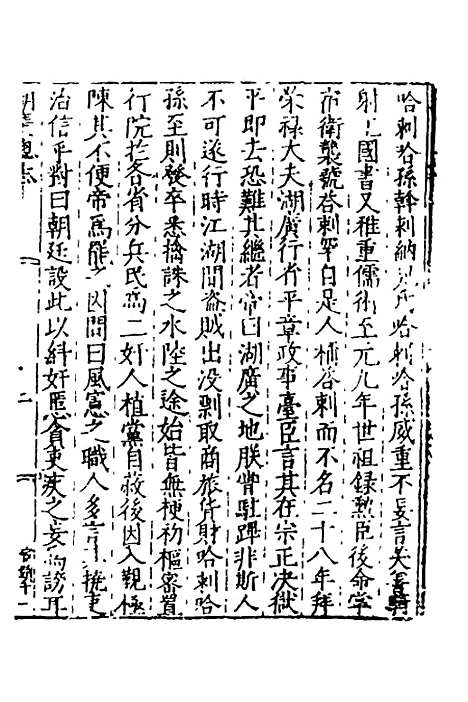 哈剌哈孫斡剌納兒氏哈剌哈孫威重不妄言笑善騎
射工國書又雅重儒術至元九年世祖録勲臣後命掌
宿衛襲號荅剌罕自是人稱荅剌而不名二十八年拜
榮禄大夫湖廣行省平章政事臺臣言其在宗正决獄
平即去恐難其繼者帝曰湖廣之地朕嘗駐蹕非斯人
不可遂行時江湖間盗賊出没剽取商旅貨財哈剌哈
孫至則發卒悉擒誅之水陸之途始皆無梗初樞密置
行院於各省分兵民爲二奸人植黨自救後因入覲極
陳其不便帝爲罷之因問曰風憲之職人多言 撓吏
治信乎對曰朝廷設此以糾奸慝貪吏疾之妄爲謗耳